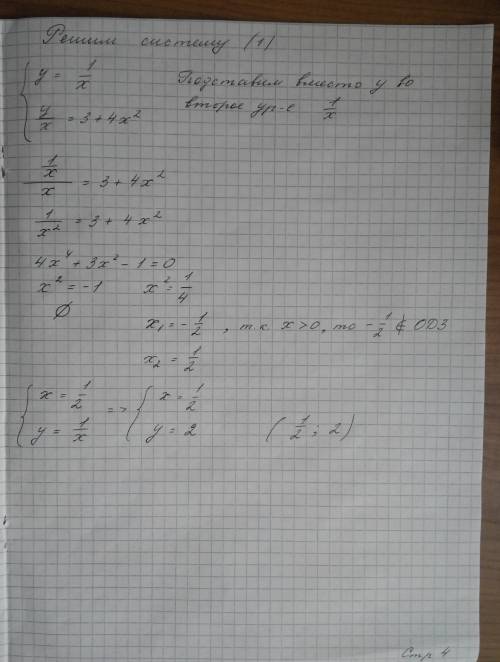 Решим систему (1)
{ y = 1/x Подставим вместо y во
второе ур-е 1/x
y/x = 3 + 4x²
(1/x)/x = 3 + 4x²
1/x² = 3 + 4x²
4x⁴ + 3x² - 1 = 0
x² = -1 x² = 1/4
∅
x₁ = -1/2 , т.к. x > 0, то -1/2 ∉ ОДЗ
x₂ = 1/2
{ x = 1/2 => { x = 1/2
y = 1/x y = 2 (1/2 ; 2)
Стр 4